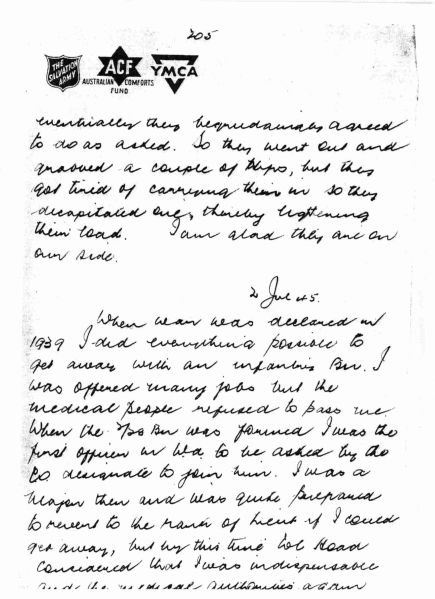 205
THE SALVATION ARMY
ACF
AUSTRALIAN COMFORTS FUND
YMCA
eventually they begrudgingly agreed
to do as asked. So they went out and
grabbed a couple of Nips, but they
got tired of carrying them in so they
decapitated one, thereby lightening
their load. I am glad they are on
our side.
2 Jul 45.
When war was declared in
1939 I did everything possible to
get away with an infantry Bn. I
was offered many jobs but the
medical people refused to pass me.
When the Bn was formed I was the
first officer in Wa to be asked by the
CO. designate to join him. I was a
Major then and was quite prepared
to revert to the rank of Lieut if I could
get away, but by this time Col Hoad
considered that I was indispensable
and the medical authorities again